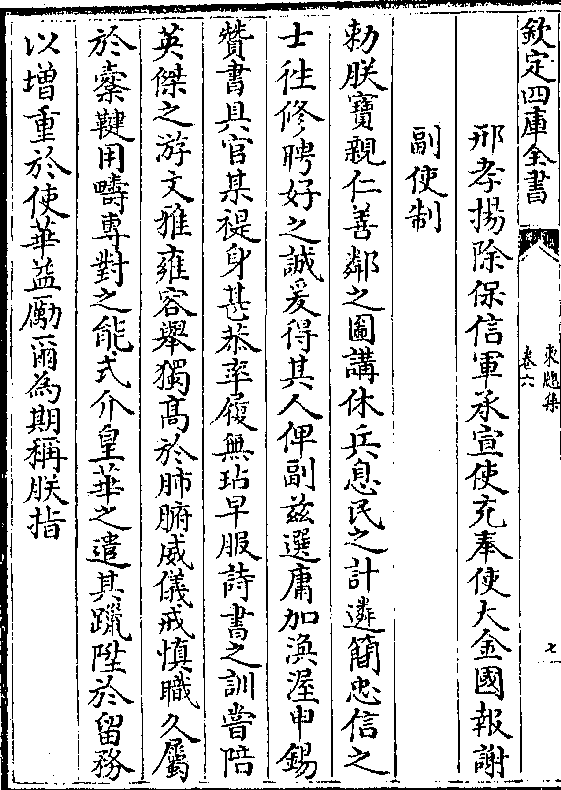 欽定四庫全書
東牕集
卷六
七
邢孝揚除保信軍承宣使充奉使大金國報謝
副使制
勅朕寶親仁善鄰之圖講休兵息民之計遴簡忠信之
士徃修聘好之誠爰得其人俾副兹選庸加渙渥申錫
贊書具官某禔身甚恭率履無玷早服詩書之訓嘗陪
英傑之游文雅雍容舉獨髙於肺腑威儀戒慎職久屬
於櫜鞬用疇専對之能式介皇華之遣其躐陞於留務
以增重於使華益勵爾為期稱朕指